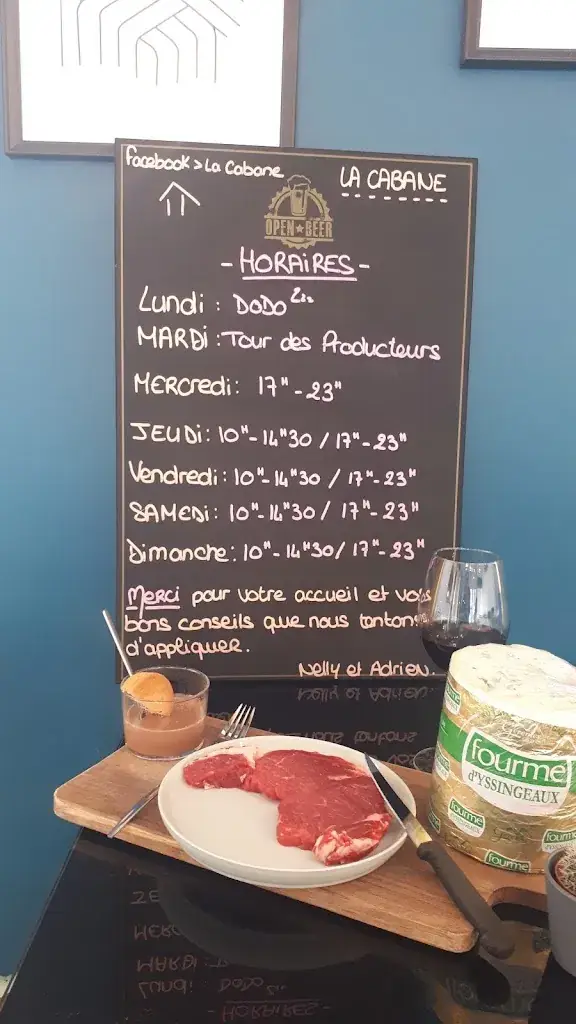 Facebook > La Cabane
LA CABANE
OPEN★BEER
- HORAIRES -
Lundi : DODO Zzz
MARDI : Tour des Producteurs
MERCREDI : 17H - 23H
JEUDI : 10H - 14H30 / 17H - 23H
Vendredi : 10H - 14H30 / 17H - 23H
SAMEDI : 10H - 14H30 / 17H - 23H
Dimanche : 10H - 14H30 / 17H - 23H
Merci pour votre accueil et vos
bons conseils que nous tentons
d'appliquer.
Nelly et Adrien.
fourme
D'YSSINGEAUX
fourme
fourme
fourme